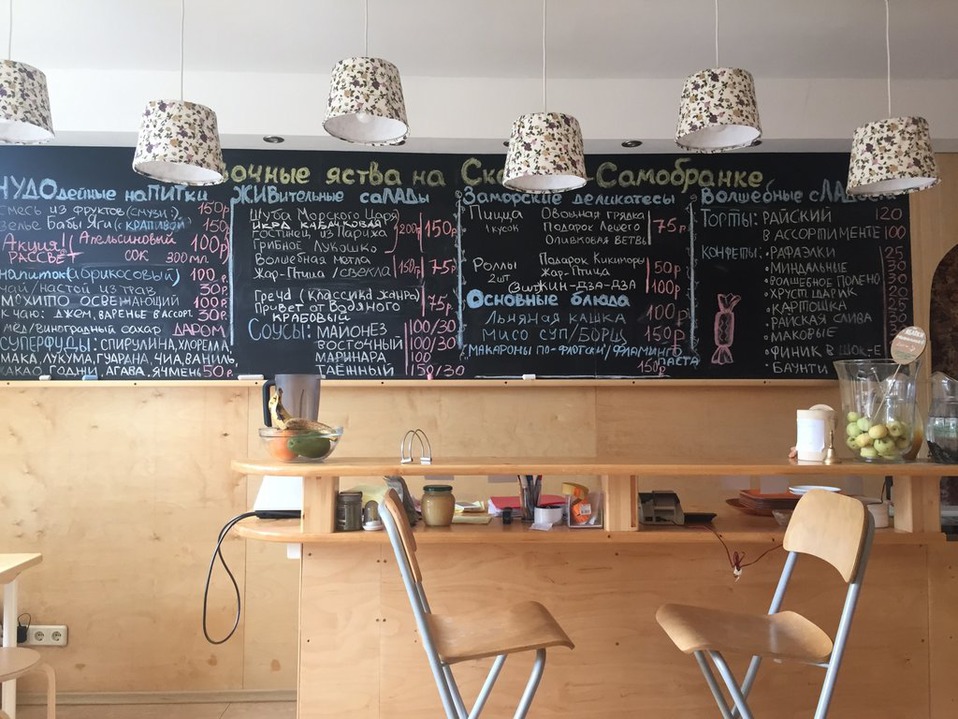 яства на
ЧУДОдейные наПИТки
смесь из фруктов (смузи) 150р
зелье Бабы Яги (с крапивой) 150р
Акция! Апельсиновый 100р
РАССВЕТ сок 300 мл
напиток (абрикосовый) 100р
чай/настой из трав 30р
МОХИТО ОСВЕЖАЮЩИЙ 100р
К ЧАЮ: ДЖЕМ, ВАРЕНЬЕ В АССОРТ. 30р
МЁД/ВИНОГРАДНЫЙ САХАР ДАРОМ
СУПЕРФУДЫ: СПИРУЛИНА, ХЛОРЕЛЛА
МАКА, ЛУКУМА, ГУАРАНА, ЧИА, ВАНИЛЬ,
КАКАО, ГОДЖИ, АГАВА, ЯЧМЕНЬ 50р
ЖИВительные саЛАДы
Шуба Морского Царя
ИКРА КАБАЧКОВАЯ
ГОСТИНЕЦ ИЗ Парижа
Грибное Лукошко
200г 150р
Волшебная метла
Жар-Птица /СВЕКЛА
150г 75р
Греча (классика жанра)
Привет от Водяного
КРАБОВЫЙ
75р
СОУСЫ: МАЙОНЕЗ 100/30
ВОСТОЧНЫЙ 100/30
МАРИНАРА 100
ТАЁННЫЙ 150/30
Заморские деликатесы
Пицца Овощная грядка
1 кусок Подарок Лешего
Оливковая ветвь
75р
Роллы Подарок Кикиморы
2шт Жар-Птица
50р
КИН-ДЗА-ДЗА 100р
Основные блюда
Льняная кашка 100р
Мисо суп/Борщ 150р
МАКАРОНЫ ПО-ФЛОТСКИ/ФЛАМИНГО
ПАСТА
150р
Волшебные
ТОРТЫ: РАЙСКИЙ 120
В АССОРТИМЕНТЕ 100
КОНФЕТЫ: РАФАЭЛКИ 25
МИНДАЛЬНЫЕ 30
ВОЛШЕБНОЕ ПОЛЕНО
ХРУСТ ШАРИК
КАРТОШКА
РАЙСКАЯ СЛИВА
МАКОВЫЕ
ФИНИК В
БАУНТИ